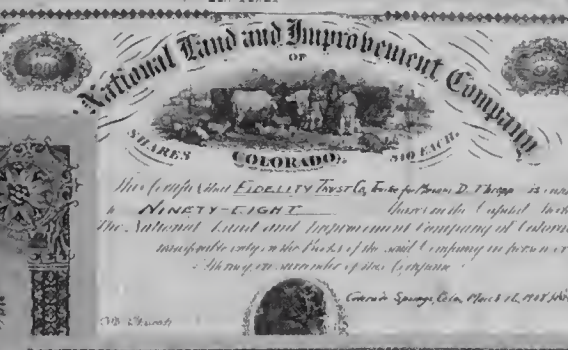 National Land and Improvement Company
OF
SHARES COLORADO. $10 EACH.
This Certifies that FIDELITY TRUST Co, Trustee for D. is
NINETY-EIGHT Shares in the Capital Stock
The National Land and Improvement Company of Colorado
transferable only on the Books of the said Company in person or
Attorney, on surrender of this Certificate
Colorado Springs, Colo. March 16, 1908